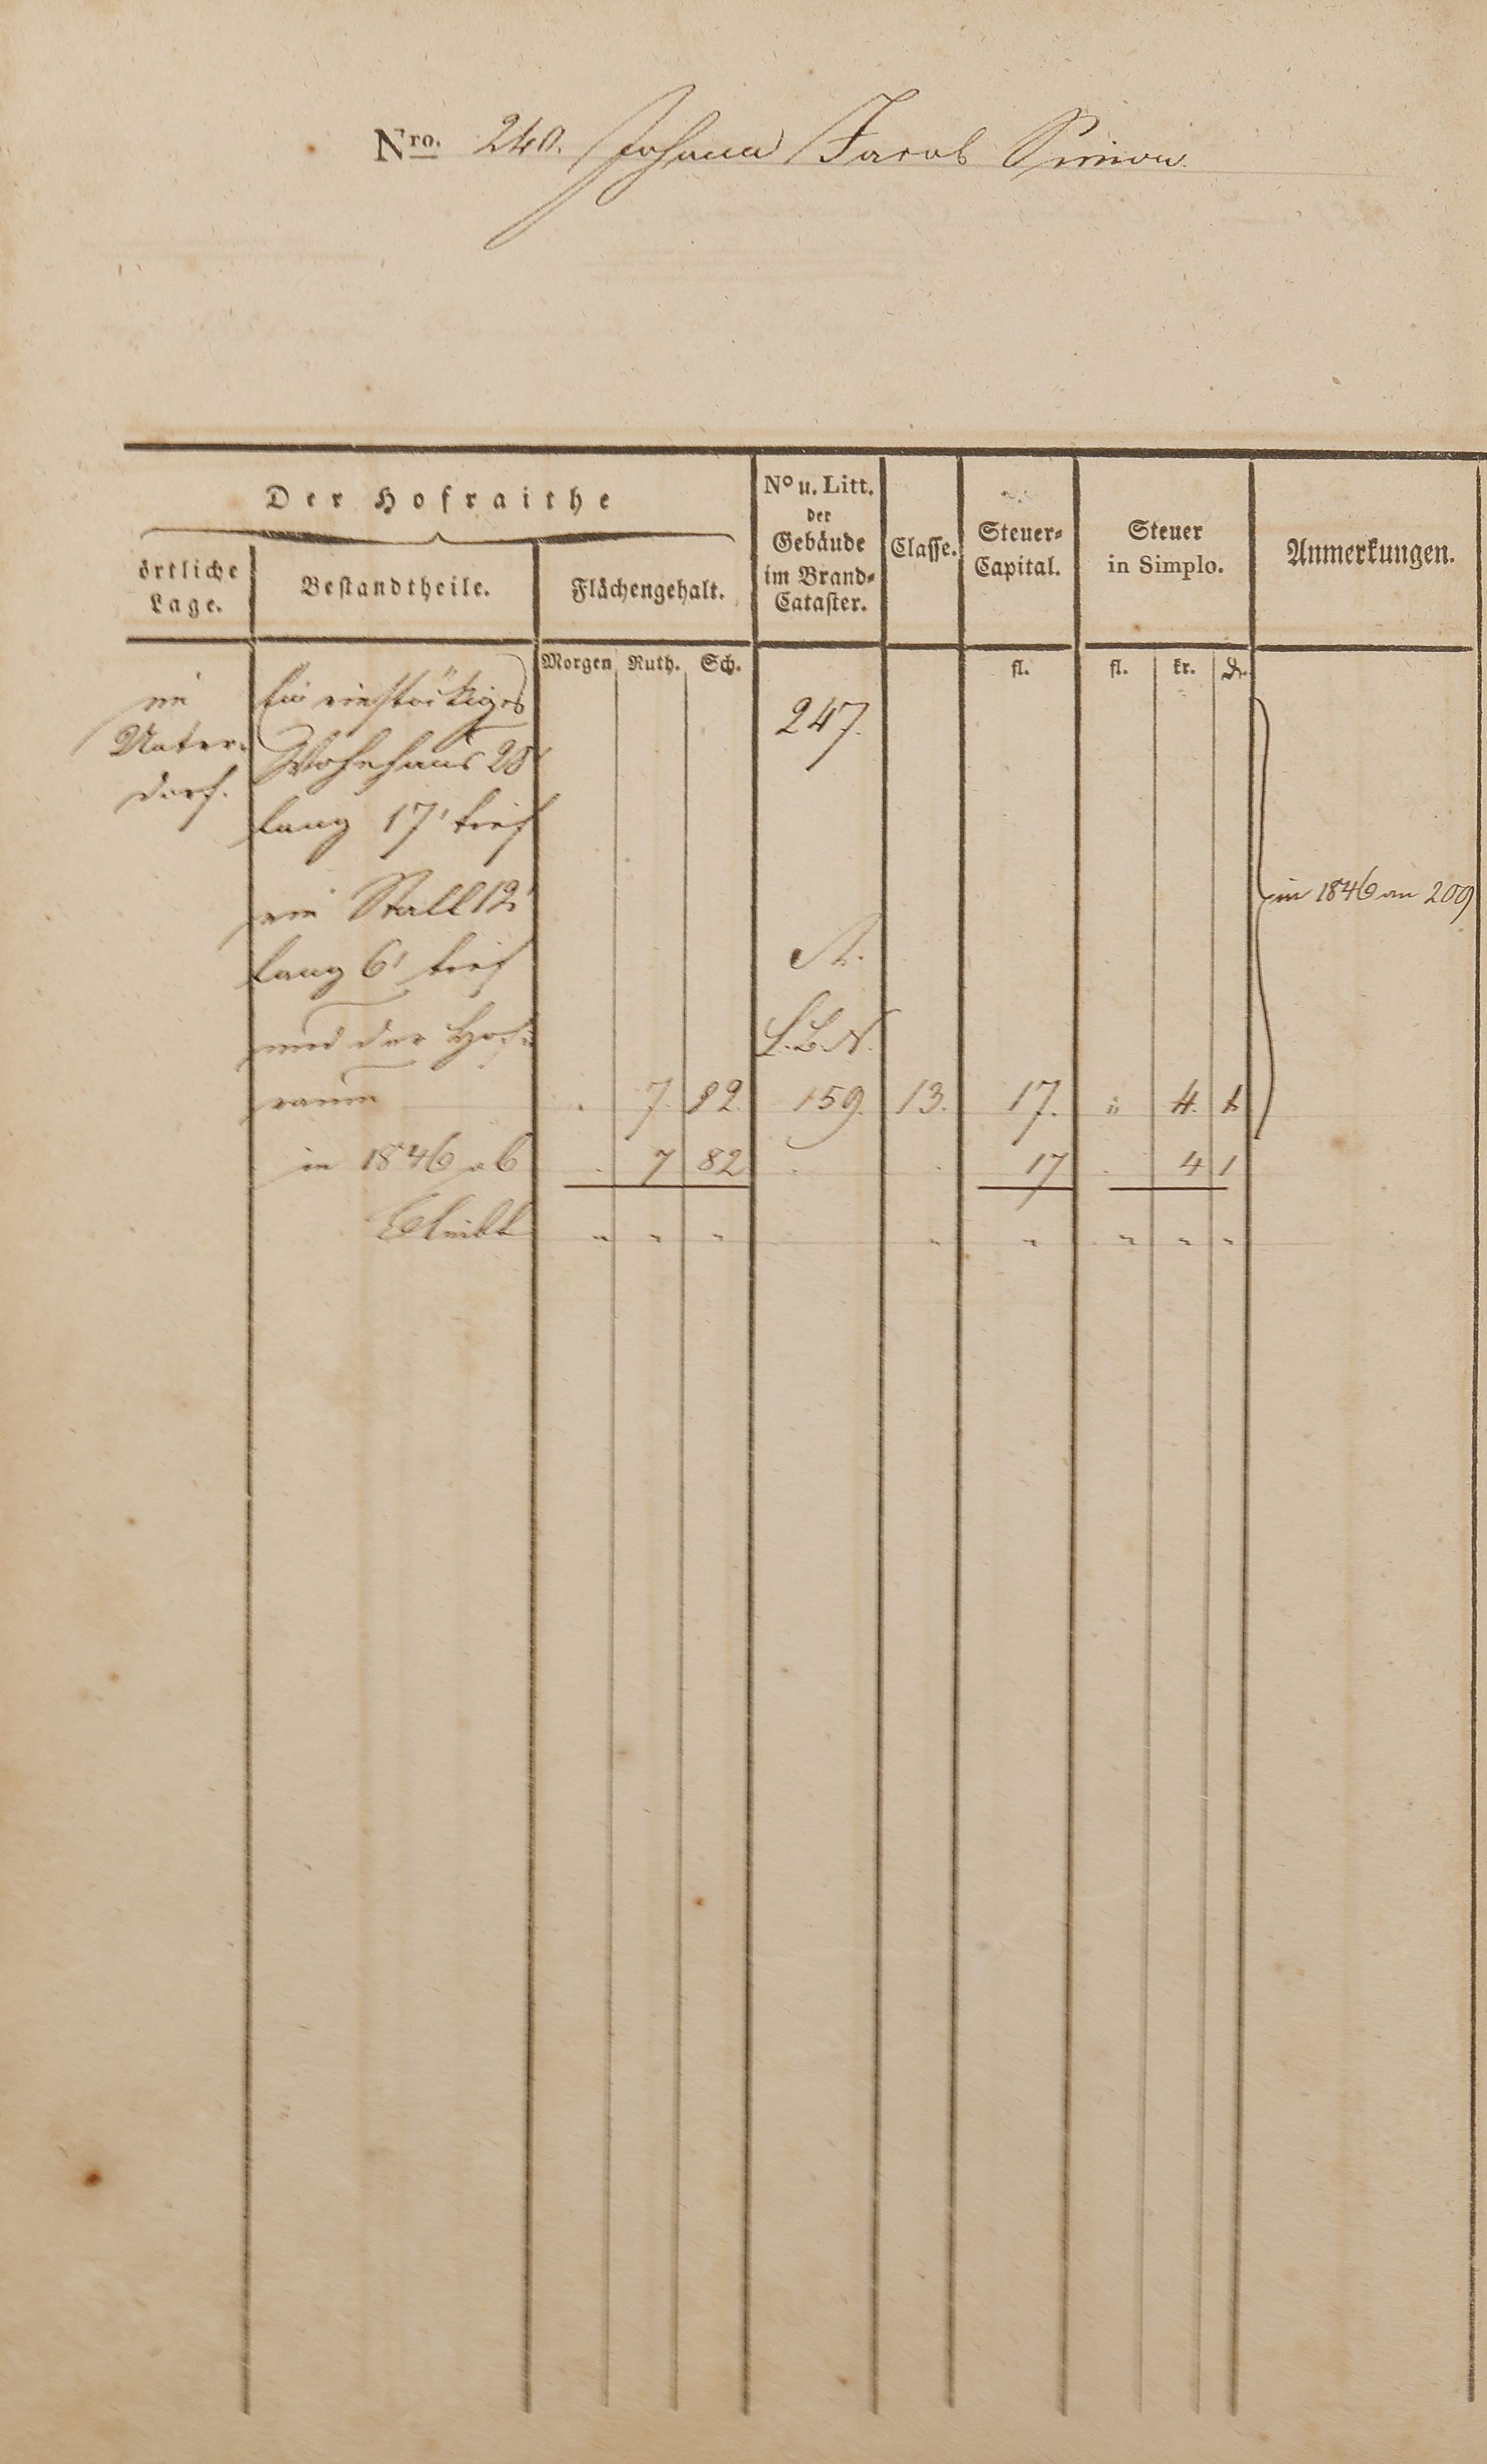 Nro. 240. Johann Jacob Simon.
Der Hofraithe
örtliche Lage.
Bestandtheile.
Flächengehalt.
No u. Litt. der Gebäude im Brand-Cataster.
Classe.
Steuer-Capital.
Steuer in Simplo.
Anmerkungen.
Morgen Ruth. Sch. fl. fl. kr. d.
im Ein einstöckiges 247.
Unter- Wohnhaus 28'
dorf. lang 17' tief
ein Stall 12'
in 1846 an 209
lang 6' tief A.
und der Hof- L.B.N.
raum . 7. 82. 159. 13. 17. " 4. 1
in 1846 ab . 7 82 . . 17 . 4 1
bleibt " " " " " " " "